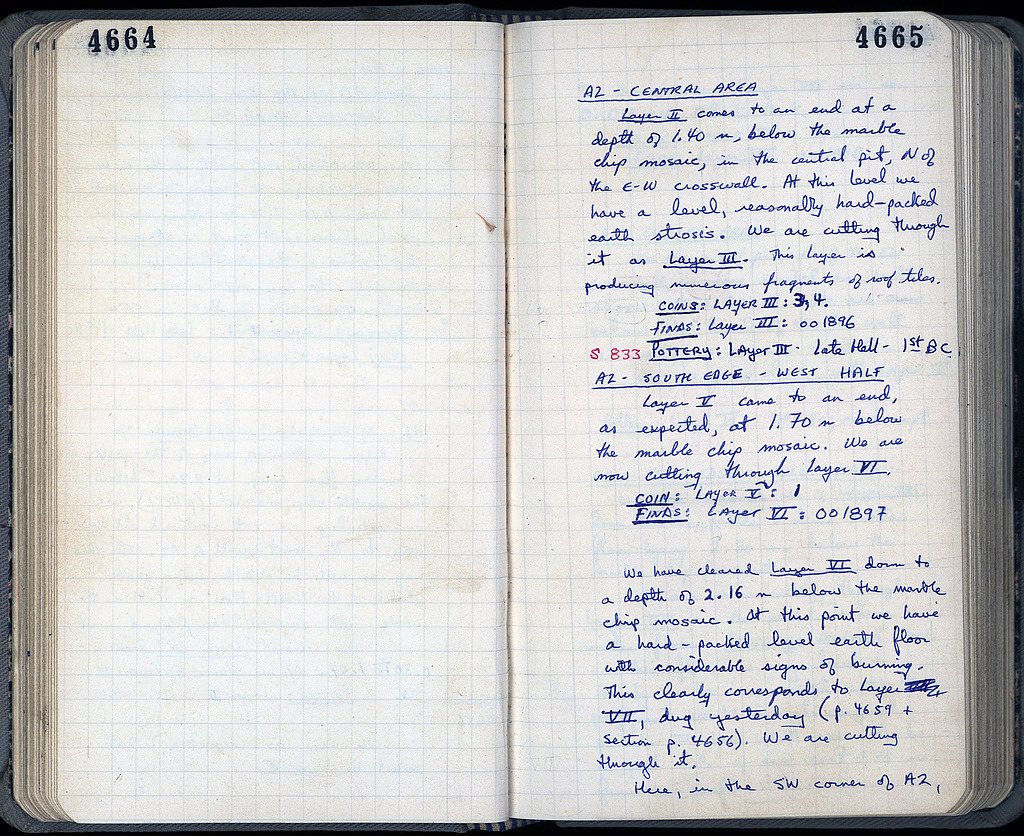 4664
4665
A2 - CENTRAL AREA
Layer II comes to an end at a
depth of 1.40 m, below the marble
chip mosaic, in the central pit, N of
the E-W crosswall. At this level we
have a level, reasonably hard-packed
earth strosis. We are cutting through
it as Layer III. This layer is
producing numerous fragments of roof tiles.
COINS: LAYER III: 3, 4.
FINDS: Layer III: 001896
S 833 POTTERY: LAyer III - Late Hell - 1st BC
A2 - SOUTH EDGE - WEST HALF
Layer V came to an end,
as expected, at 1.70 m below
the marble chip mosaic. We are
now cutting through Layer VI.
COIN: LAYER V: 1
FINDS: LAyer VI: 001897
We have cleared Layer VI down to
a depth of 2.16 m below the marble
chip mosaic. At this point we have
a hard-packed level earth floor
with considerable signs of burning.
This clearly corresponds to Layer
VII, dug yesterday (p. 4659 +
section p. 4656). We are cutting
through it.
Here, in the SW corner of A2,